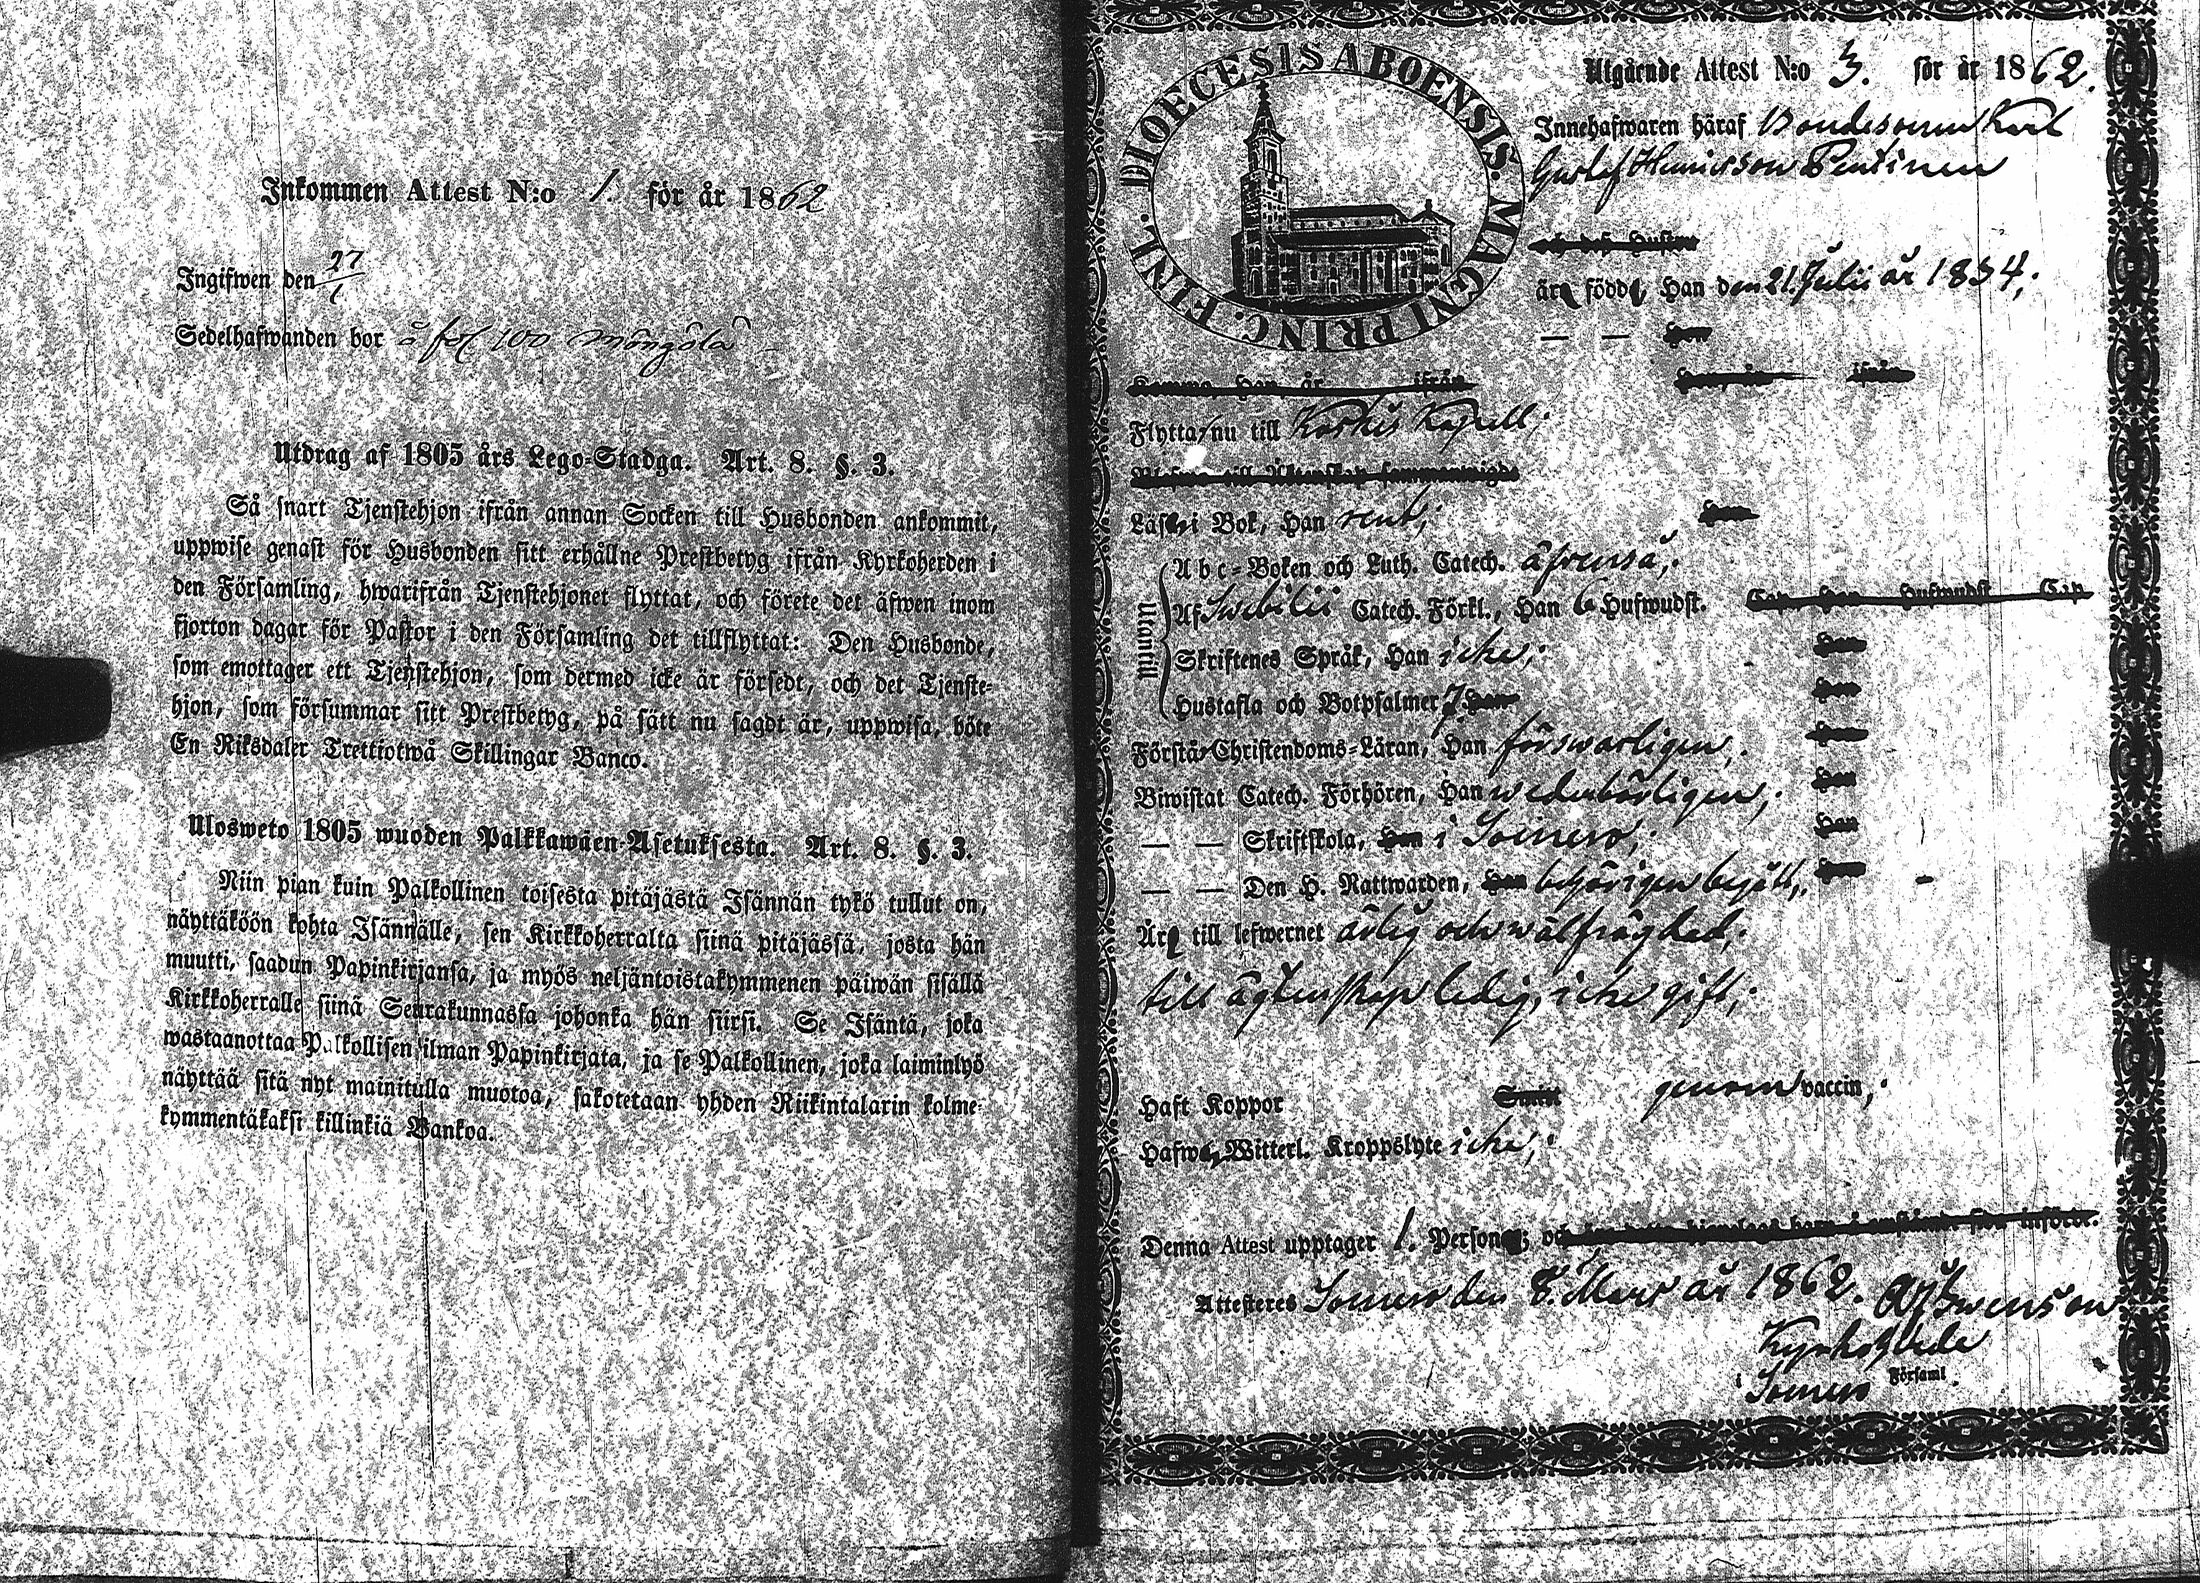 Inkommen Attest N:o 1. för år 1862
Ingifwen den 27/1
Sedelhafwanden bor å fol 100 Möngölä
Utdrag af 1805 års Lego-Stadga. Art. 8. §. 3.
Så snart Tjenstehjon ifrån annan Socken till Husbonden ankommit,
uppwise genast för Husbonden sitt erhållne Prestbetyg ifrån Kyrkoherden i
den Församling, hwarifrån Tjenstehjonet flyttat, och förete det äfwen inom
fjorton dagar för Pastor i den Församling det tillflyttat: Den Husbonde,
som emottager ett Tjenstehjon, som dermed icke är försedt, och det Tjenste-
hjon, som försummar sitt Prestbetyg, på sätt nu sagdt är, uppwisa, böte
En Riksdaler Trettiotwå Skillingar Banco.
Ulosweto 1805 wuoden Palkkawäen-Asetuksesta. Art. 8. §. 3.
Niin pian kuin Palkollinen toisesta pitäjästä Isännän tykö tullut on,
näyttäköön kohta Isännälle, sen Kirkkoherralta siinä pitäjässä, josta hän
muutti, saadun Papinkirjansa, ja myös neljäntoistakymmenen päiwän sisällä
Kirkkoherralle siinä Seurakunnassa johonka hän siirsi. Se Isäntä, joka
wastaanottaa Palkollisen ilman Papinkirjata, ja se Palkollinen, joka laiminlyö
näyttää sitä nyt mainitulla muotoa, sakotetaan yhden Riikintalarin kolme-
kymmentäkaksi killinkiä Bankoa.
DIOECESIS ABOENSIS. MAGNI PRINC. FINL.
Utgående Attest N:o 3. för år 1862.
Innehafwaren häraf Bondesonen Karl
Gustaf Henricsson Penttinen
och des Hustru
är född, Han den 21. Julii år 1834;
— — Hon
Kommo Han år ifrån Hon år ifrån
Flytta nu till Koskis Kapell;
Blefwo till Äktenskap sammanwigde
Läser i Bok, Han rent; Hon
Utantill
Abc-Boken och Luth. Catech. äfvenså;
Af Swebilii Catech. Förkl., Han 6 Hufwudst. Cap. Hon Hufwudst. Cap.
Skriftenes Språk, Han icke; Hon
Hustafla och Botpsalmer Han Hon
Förstår Christendoms-Läran, Han förswarligen; Hon
Biwistat Catech. Förhören, Han wederbörligen; Hon
— — Skriftskola, Han i Somero; Hon
— — Den H. Nattwarden, Han behörigen begått; Hon
Är till lefwernet ärlig och wälfrägdad;
till ägtenskap ledig, icke gift;
Haft Koppor Samt genom vaccin;
Hafwer Witterl. Kroppslyte icke;
Denna Attest upptager 1. Person; och
Attesteres Somero den 8. Mars år 1862. Swenson
Kyrkoherde
i Somero Församl.